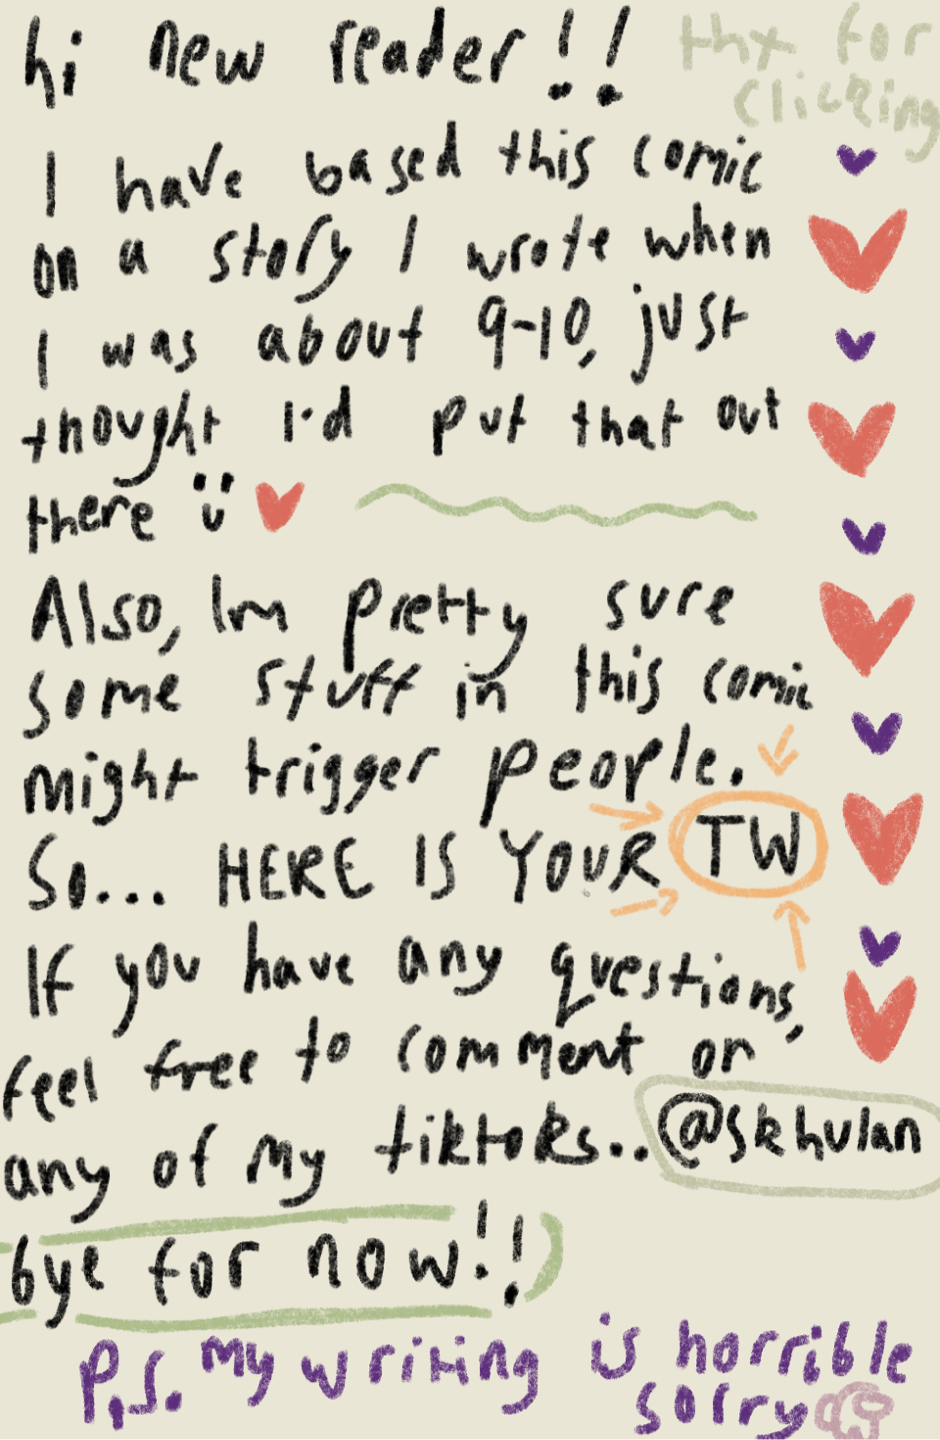 hi new reader!!
thx for
clicking
I have based this comic
on a story I wrote when
I was about 9-10, just
thought I'd put that out
there Ü
Also, Im pretty sure
some stuff in this comic
might trigger people.
So... HERE IS YOUR TW
If you have any questions,
feel free to comment on
any of my tiktoks... @skhulan
bye for now!!
P.S. my writing is horrible
sorry